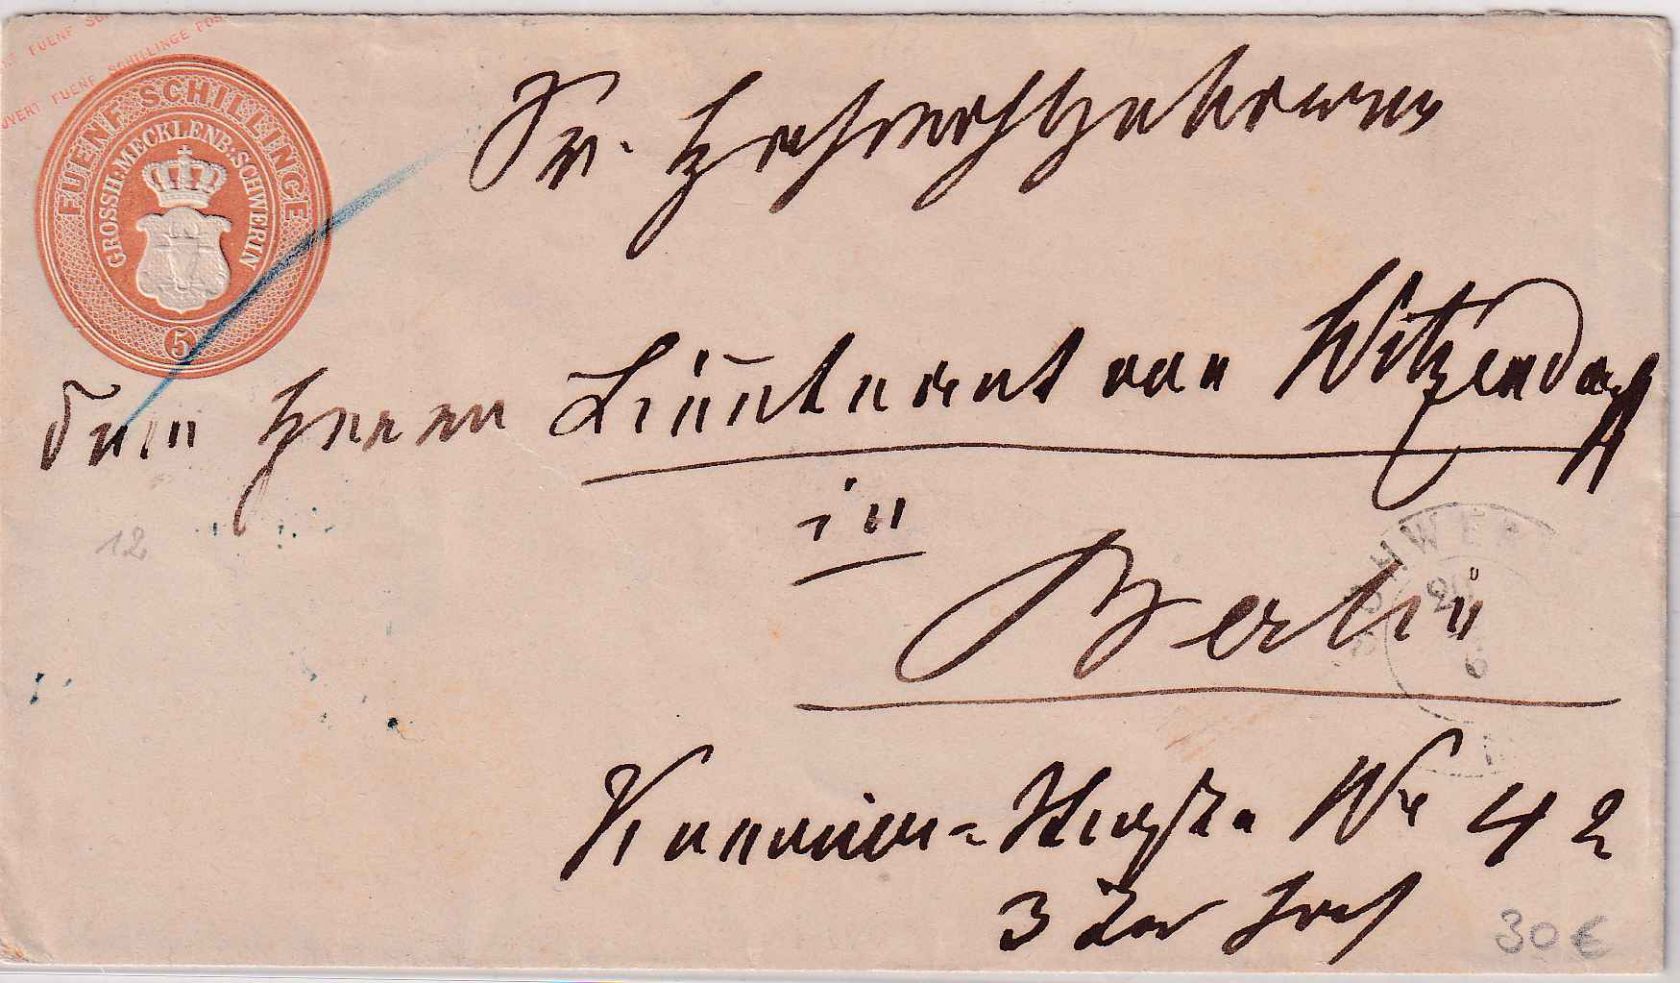 FUENF SCHILLINGE POST
COUVERT FUENF SCHILLINGE POS
FUENF SCHILLINGE
GROSSH. MECKLENB. SCHWERIN
5
Sr. Hochwohlgeboren
dem Herrn Lieutenant von Witzendorff
in
Berlin
SCHWERIN
20
6
Nr 42
3 Hof
12
30€